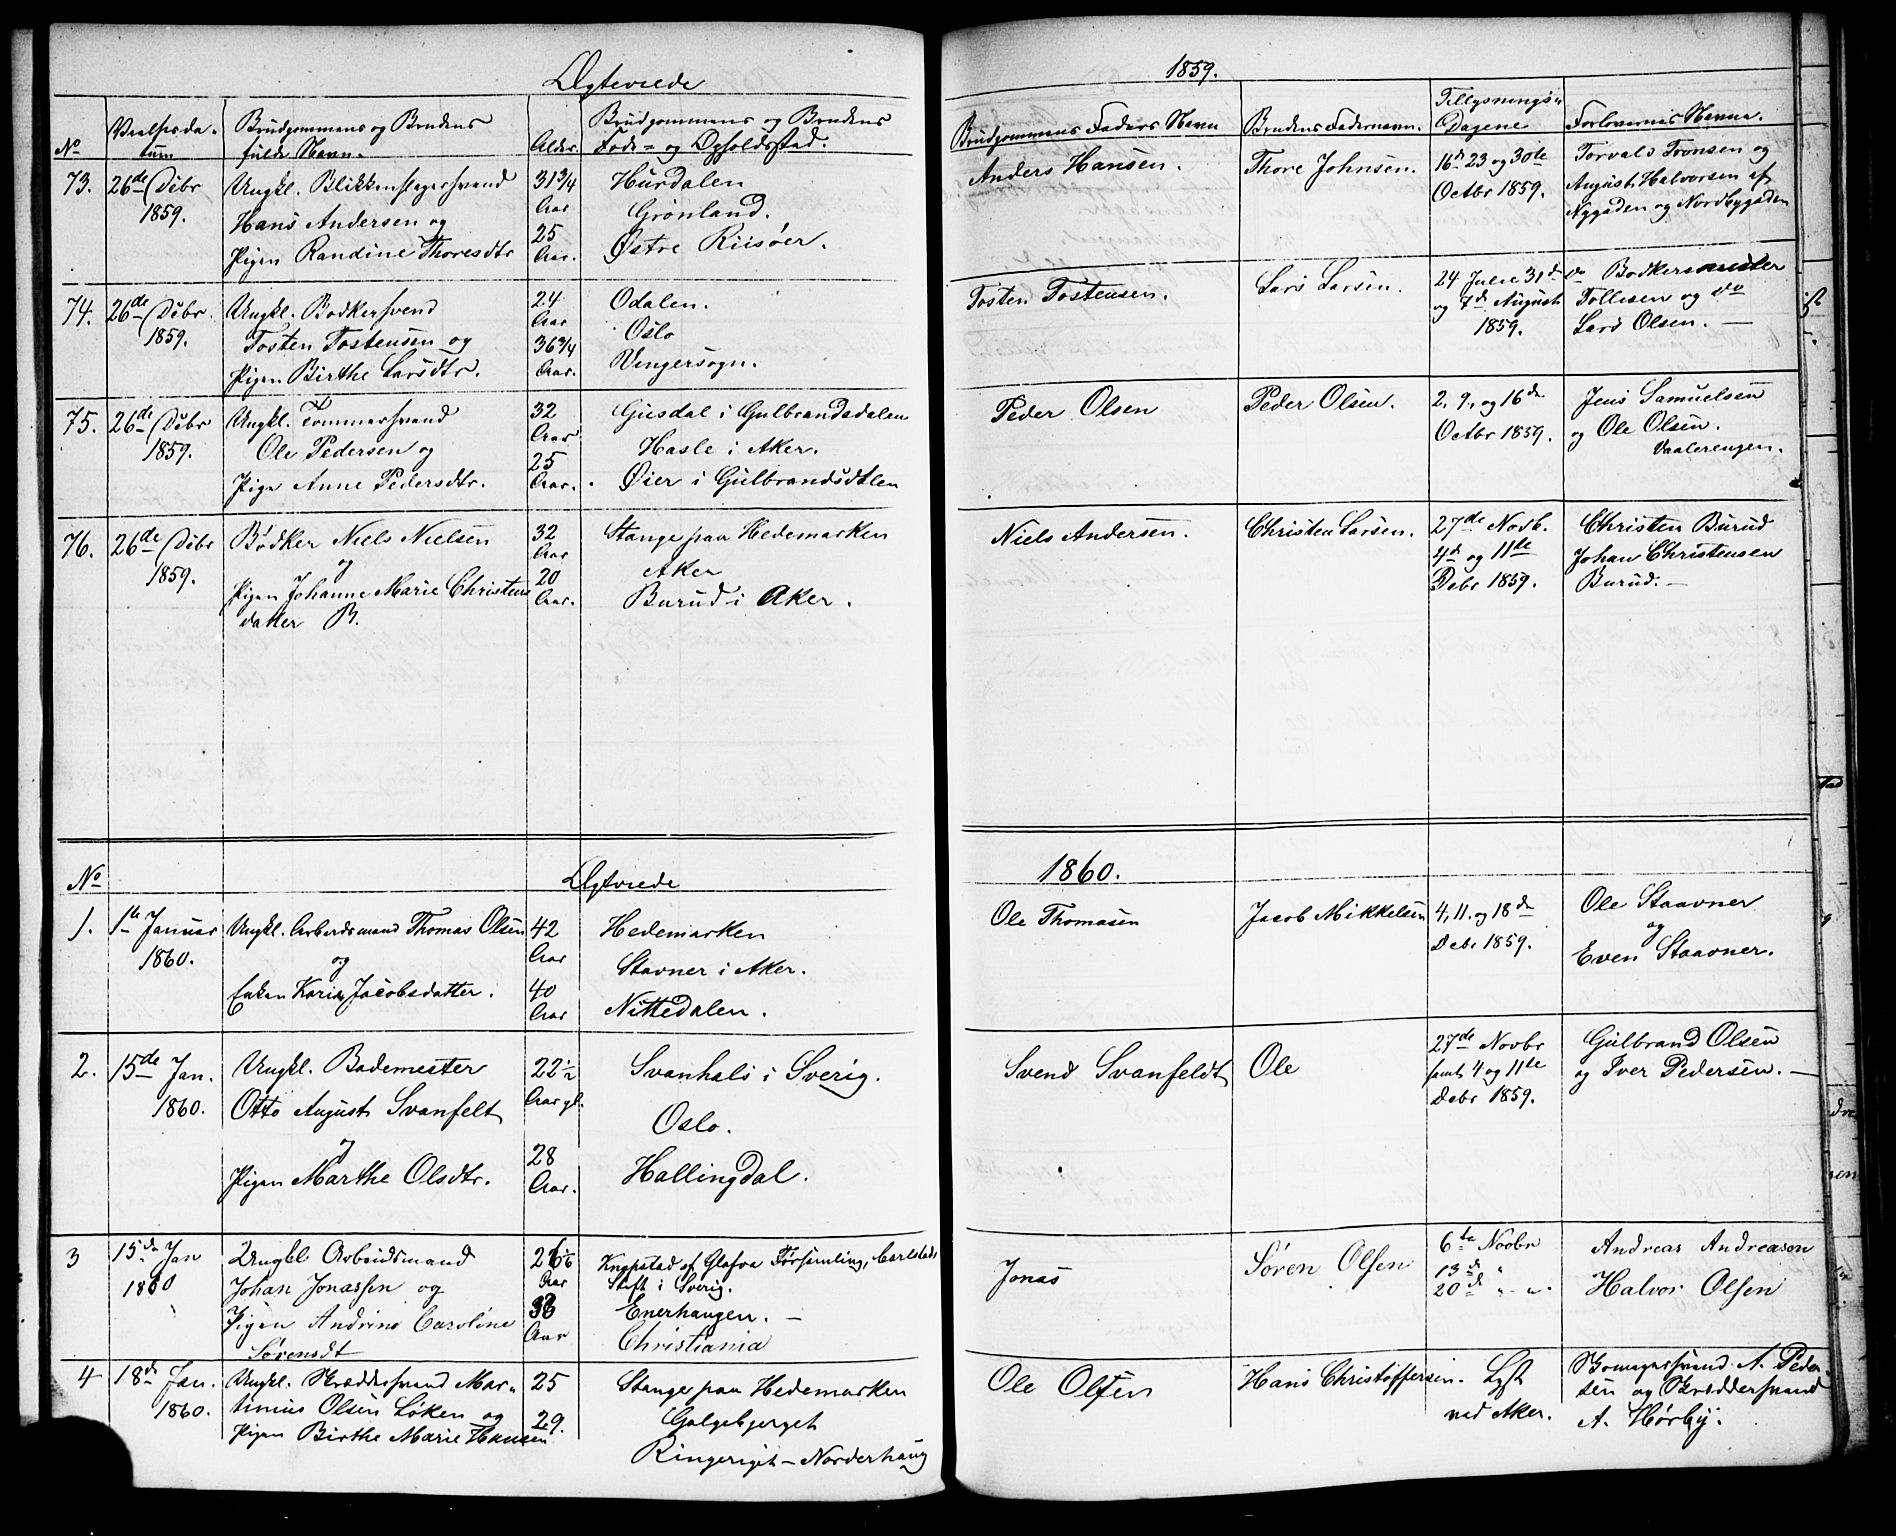 Ægteviede
No
Vielsesda-
tum
Brudgommens og Brudens
fulde Navn.
Alder.
Brudgommens og Brudens
Føde- og Opholdsstad.
73.
26de Debr
1859.
Ungkl. Blikkenslagersvend
Hans Andersen og
Pigen Randine Thoresdtr
31 3/4
Aar
25
Aar.
Hurdalen
Grønland.
Østre Riisøer.
74.
26de Debr.
1859.
Ungkl. Bødkersvend
Tosten Tostensen og
Pigen Birthe Larsdtr.
24
Aar
36 3/4
Aar.
Odalen.
Oslo
Vingersogn.
75.
26de Debr
1859.
Ungkl. Tømmersvend
Ole Pedersen og
Pige Anne Pedersdtr.
32
Aar
25
Aar.
Gusdal i Gulbrandsdalen
Hasle i Aker.
Øier i Gulbrandsdalen
76.
26de Debr
1859.
Bødker Niels Nielsen
og
Pigen Johanne Marie Christens
datter B.
32
Aar
20
Aar.
Stange paa Hedemarken
Aker
Burud i Aker.
No
Ægteviede
1.
1te Januar
1860.
Ungkl. Arbeidsmand Thomas Olsen
og
Enken Kari Jacobsdatter.
42
Aar
40
Aar
Hedemarken
Stavner i Aker.
Nittedalen.
2.
15de Jan.
1860.
Ungkl. Bademester
Otto August Svanfelt
og
Pigen Marthe Olsdtr.
22 1/2
Aar gl.
28
Aar.
Svanhals i Sverig.
Oslo.
Hallingdal.
3
15de Jan
1860
Ungkl Arbeidsmand
Johan Jonassen og
Pigen Andrine Caroline
Sørensdt
Aar
Aar
Knypstad af Glafva Församling, Carlstads
Stift i Sverig.
Enerhaugen. —
Christiania
4
18de Jan.
1860.
Ungkl. Skræddersvend Mar-
tinius Olsen Løken og
Pigen Birthe Marie Hansen
25
29.
Stange paa Hedemarken
Galgebjerget
Ringeriget — Norderhaug
1859.
Brudgommens Faders Navn
Brudens Fadernavn.
Tillysnings-
Dagene
Forlovernes Navne.
Anders Hansen.
Thore Johnsen.
16de 23 og 30te
Octbr 1859.
Torvald Tronsen og
August Halvorsen af
Nygaden og Nordbygaden
Tosten Tostensen.
Lars Larsen.
24 Julii 31de
og 7de August
1859.
Bødkermester
Tollesen og do
Lars Olsen. —
Peder Olsen
Peder Olsen.
2, 9, og 16de
Octbr 1859.
Jens Samuelsen
og Ole Olsen.
Vaalerengen.
Niels Andersen.
Christen Larsen.
27de Novb.
4de og 11te
Debr 1859.
Christen Burud
Johan Christensen
Burud. —
1860.
Ole Thomasen
Jacob Mikkelsen
4, 11. og 18de
Debr 1859.
Ole Staavner
og
Even Staavner.
Svend Svanfeldt
Ole
27de Novbr
samt 4 og 11te
Debr 1859.
Gulbrand Olsen
og Iver Pedersen. —
Jonas
Søren Olsen
6te Novbr
13de "
20de " "
Andreas Andreasen
Halvor Olsen
Ole Olsen
Hans Christoffersen.
Lyst
ved Aker.
A. Peder-
sen og Skræddersvend
A. Hørby.